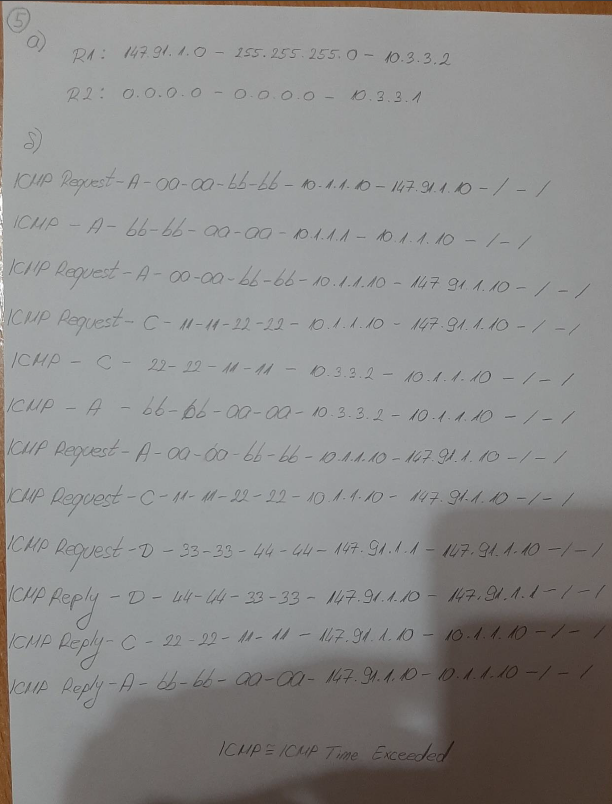 5
a)
R1: 147.91.1.0 - 255.255.255.0 - 10.3.3.2
R2: 0.0.0.0 - 0.0.0.0 - 10.3.3.1
б)
ICMP Request - A - aa-aa - bb-bb - 10.1.1.10 - 147.91.1.10 - / - /
ICMP - A - bb-bb - aa-aa - 10.1.1.1 - 10.1.1.10 - / - /
ICMP Request - A - aa-aa - bb-bb - 10.1.1.10 - 147.91.1.10 - / - /
ICMP Request - C - 11-11-22-22 - 10.1.1.10 - 147.91.1.10 - / - /
ICMP - C - 22-22-11-11 - 10.3.3.2 - 10.1.1.10 - / - /
ICMP - A - bb-bb-aa-aa - 10.3.3.2 - 10.1.1.10 - / - /
ICMP Request - A - aa-aa-bb-bb - 10.1.1.10 - 147.91.1.10 - / - /
ICMP Request - C - 11-11-22-22 - 10.1.1.10 - 147.91.1.10 - / - /
ICMP Request - D - 33-33-44-44 - 147.91.1.1 - 147.91.1.10 - / - /
ICMP Reply - D - 44-44-33-33 - 147.91.1.10 - 147.91.1.1 - / - /
ICMP Reply - C - 22-22-11-11 - 147.91.1.10 - 10.1.1.10 - / - /
ICMP Reply - A - bb-bb-aa-aa - 147.91.1.10 - 10.1.1.10 - / - /
ICMP ≡ ICMP Time Exceeded